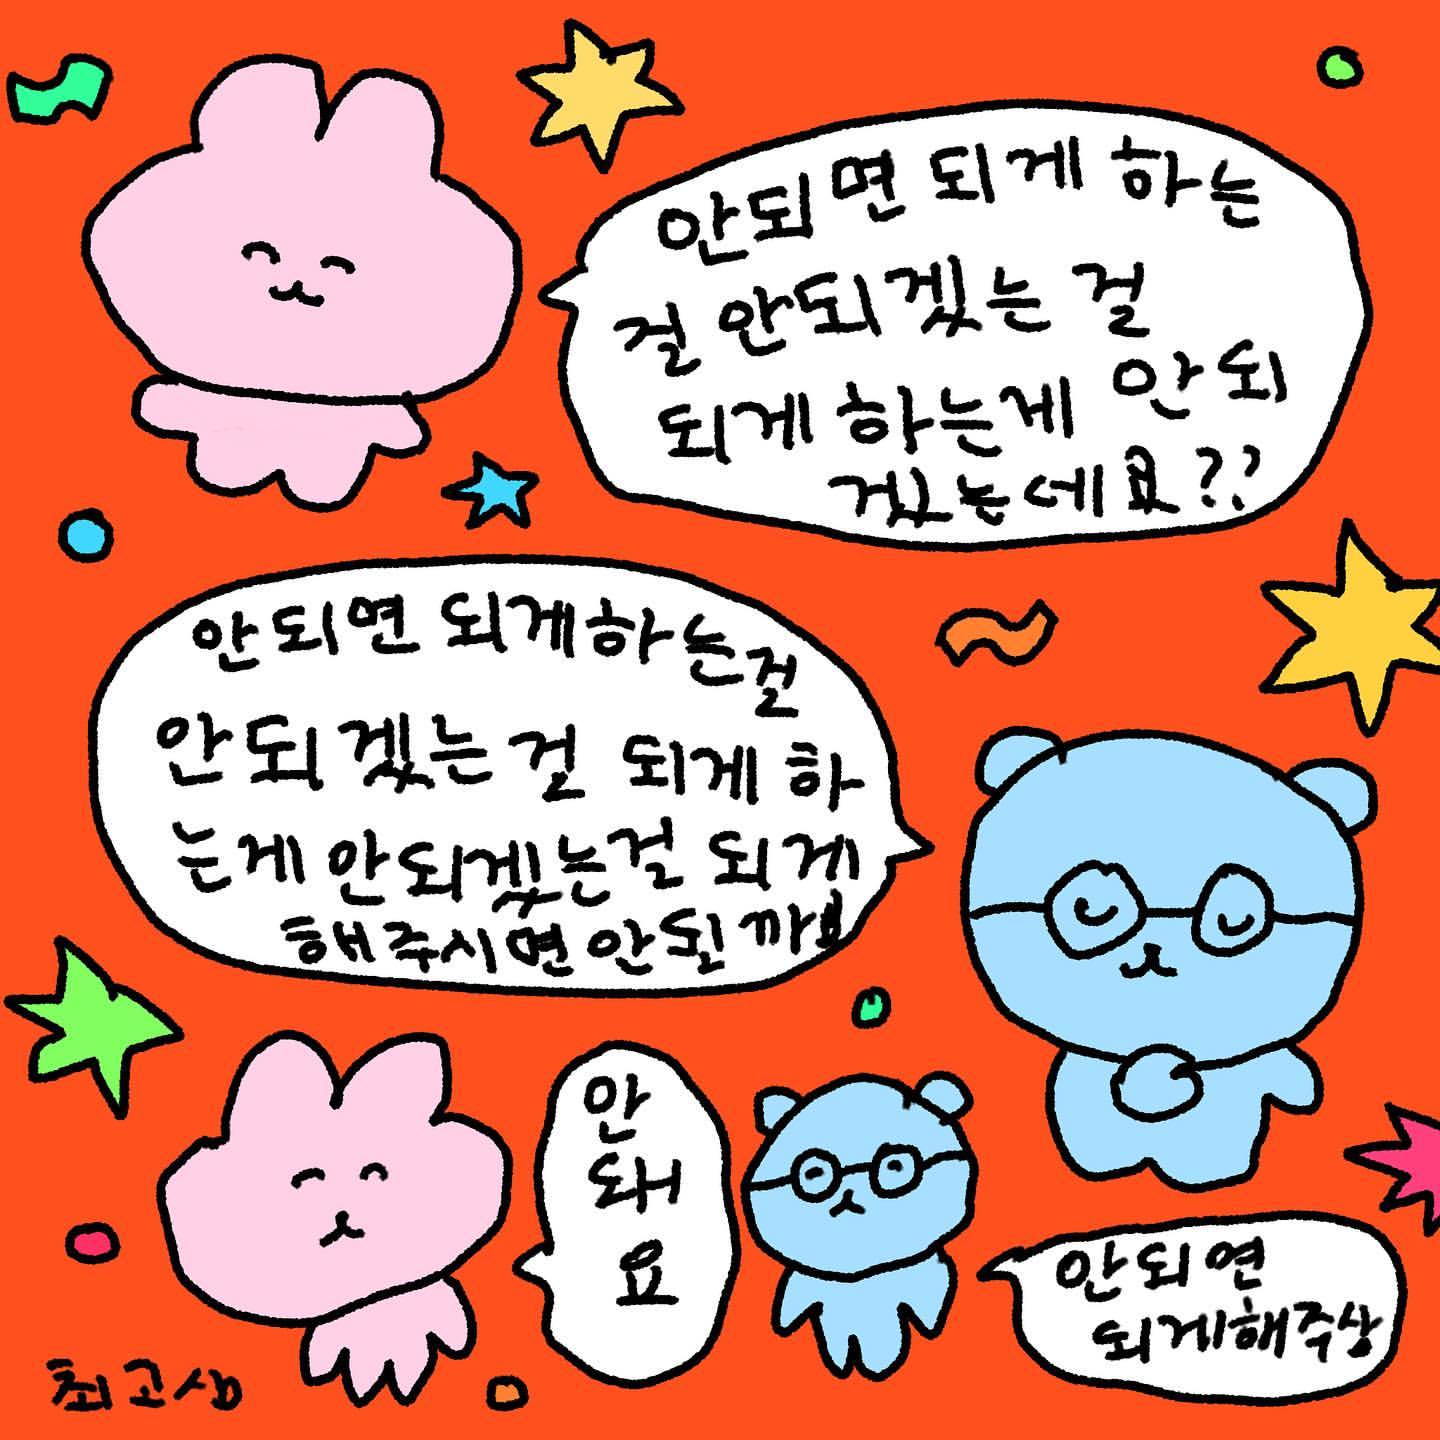 안되면 되게 하는
걸 안되겠는 걸
되게 하는게 안되
겠는데요??
안되면 되게하는걸
안되겠는걸 되게 하
는게 안되겠는걸 되게
해주시면 안될까요
안
돼
요
안되면
되게해주상
최고심